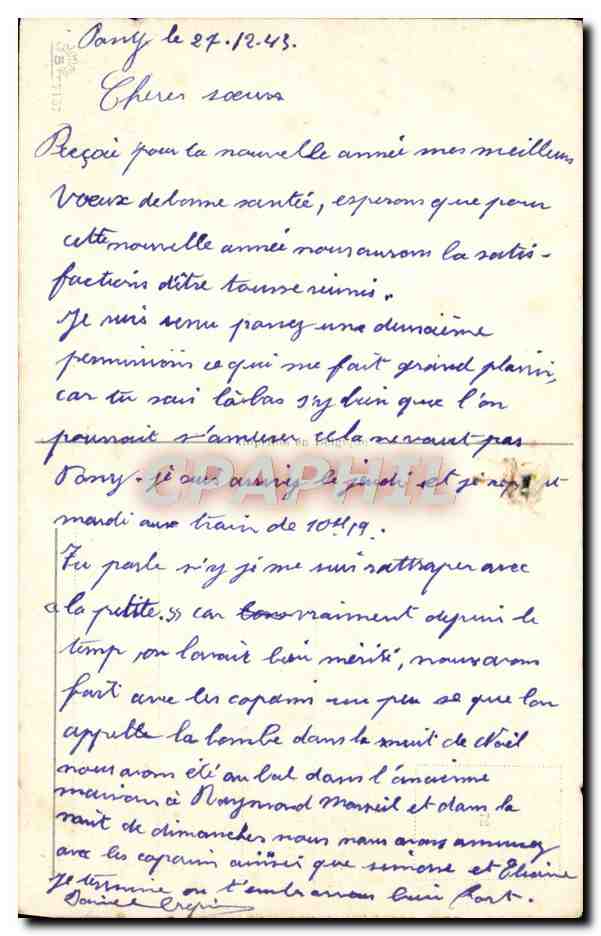 Pany le 27.12.43.
Cheres soeurs
Reçois pour la nouvelle année mes meilleurs
vœux de bonne santée, esperons que pour
cette nouvelle année nous aurons la satis-
factions d'être tousse reunis.
Je suis venu passez une deuxième
permissions ce qui me fait grand plaisir,
car tu sais làbas s'y bien que l'on
pourrait s'amuser cela ne vaut pas
Pany. je suis arrivez le jeudi et je
mardi aux train de 10H19.
Tu parle s'y je me suis rattraper avec
"la petite." car vraiment depuis le
temp on lavait bien mérité, nous avons
fait avec les copains un peu se que l'on
appelle la bombe dans la nuit de Noël
nous avons été au bal dans l'ancienne
maisons à Raymond Marseil et dans la
nuit de dimanches nous nous avons amusez
avec les copains ainsi que simone et Eliane
Je termine en t'embrassons bien fort.
Daniel Crepin
CPAPHIL